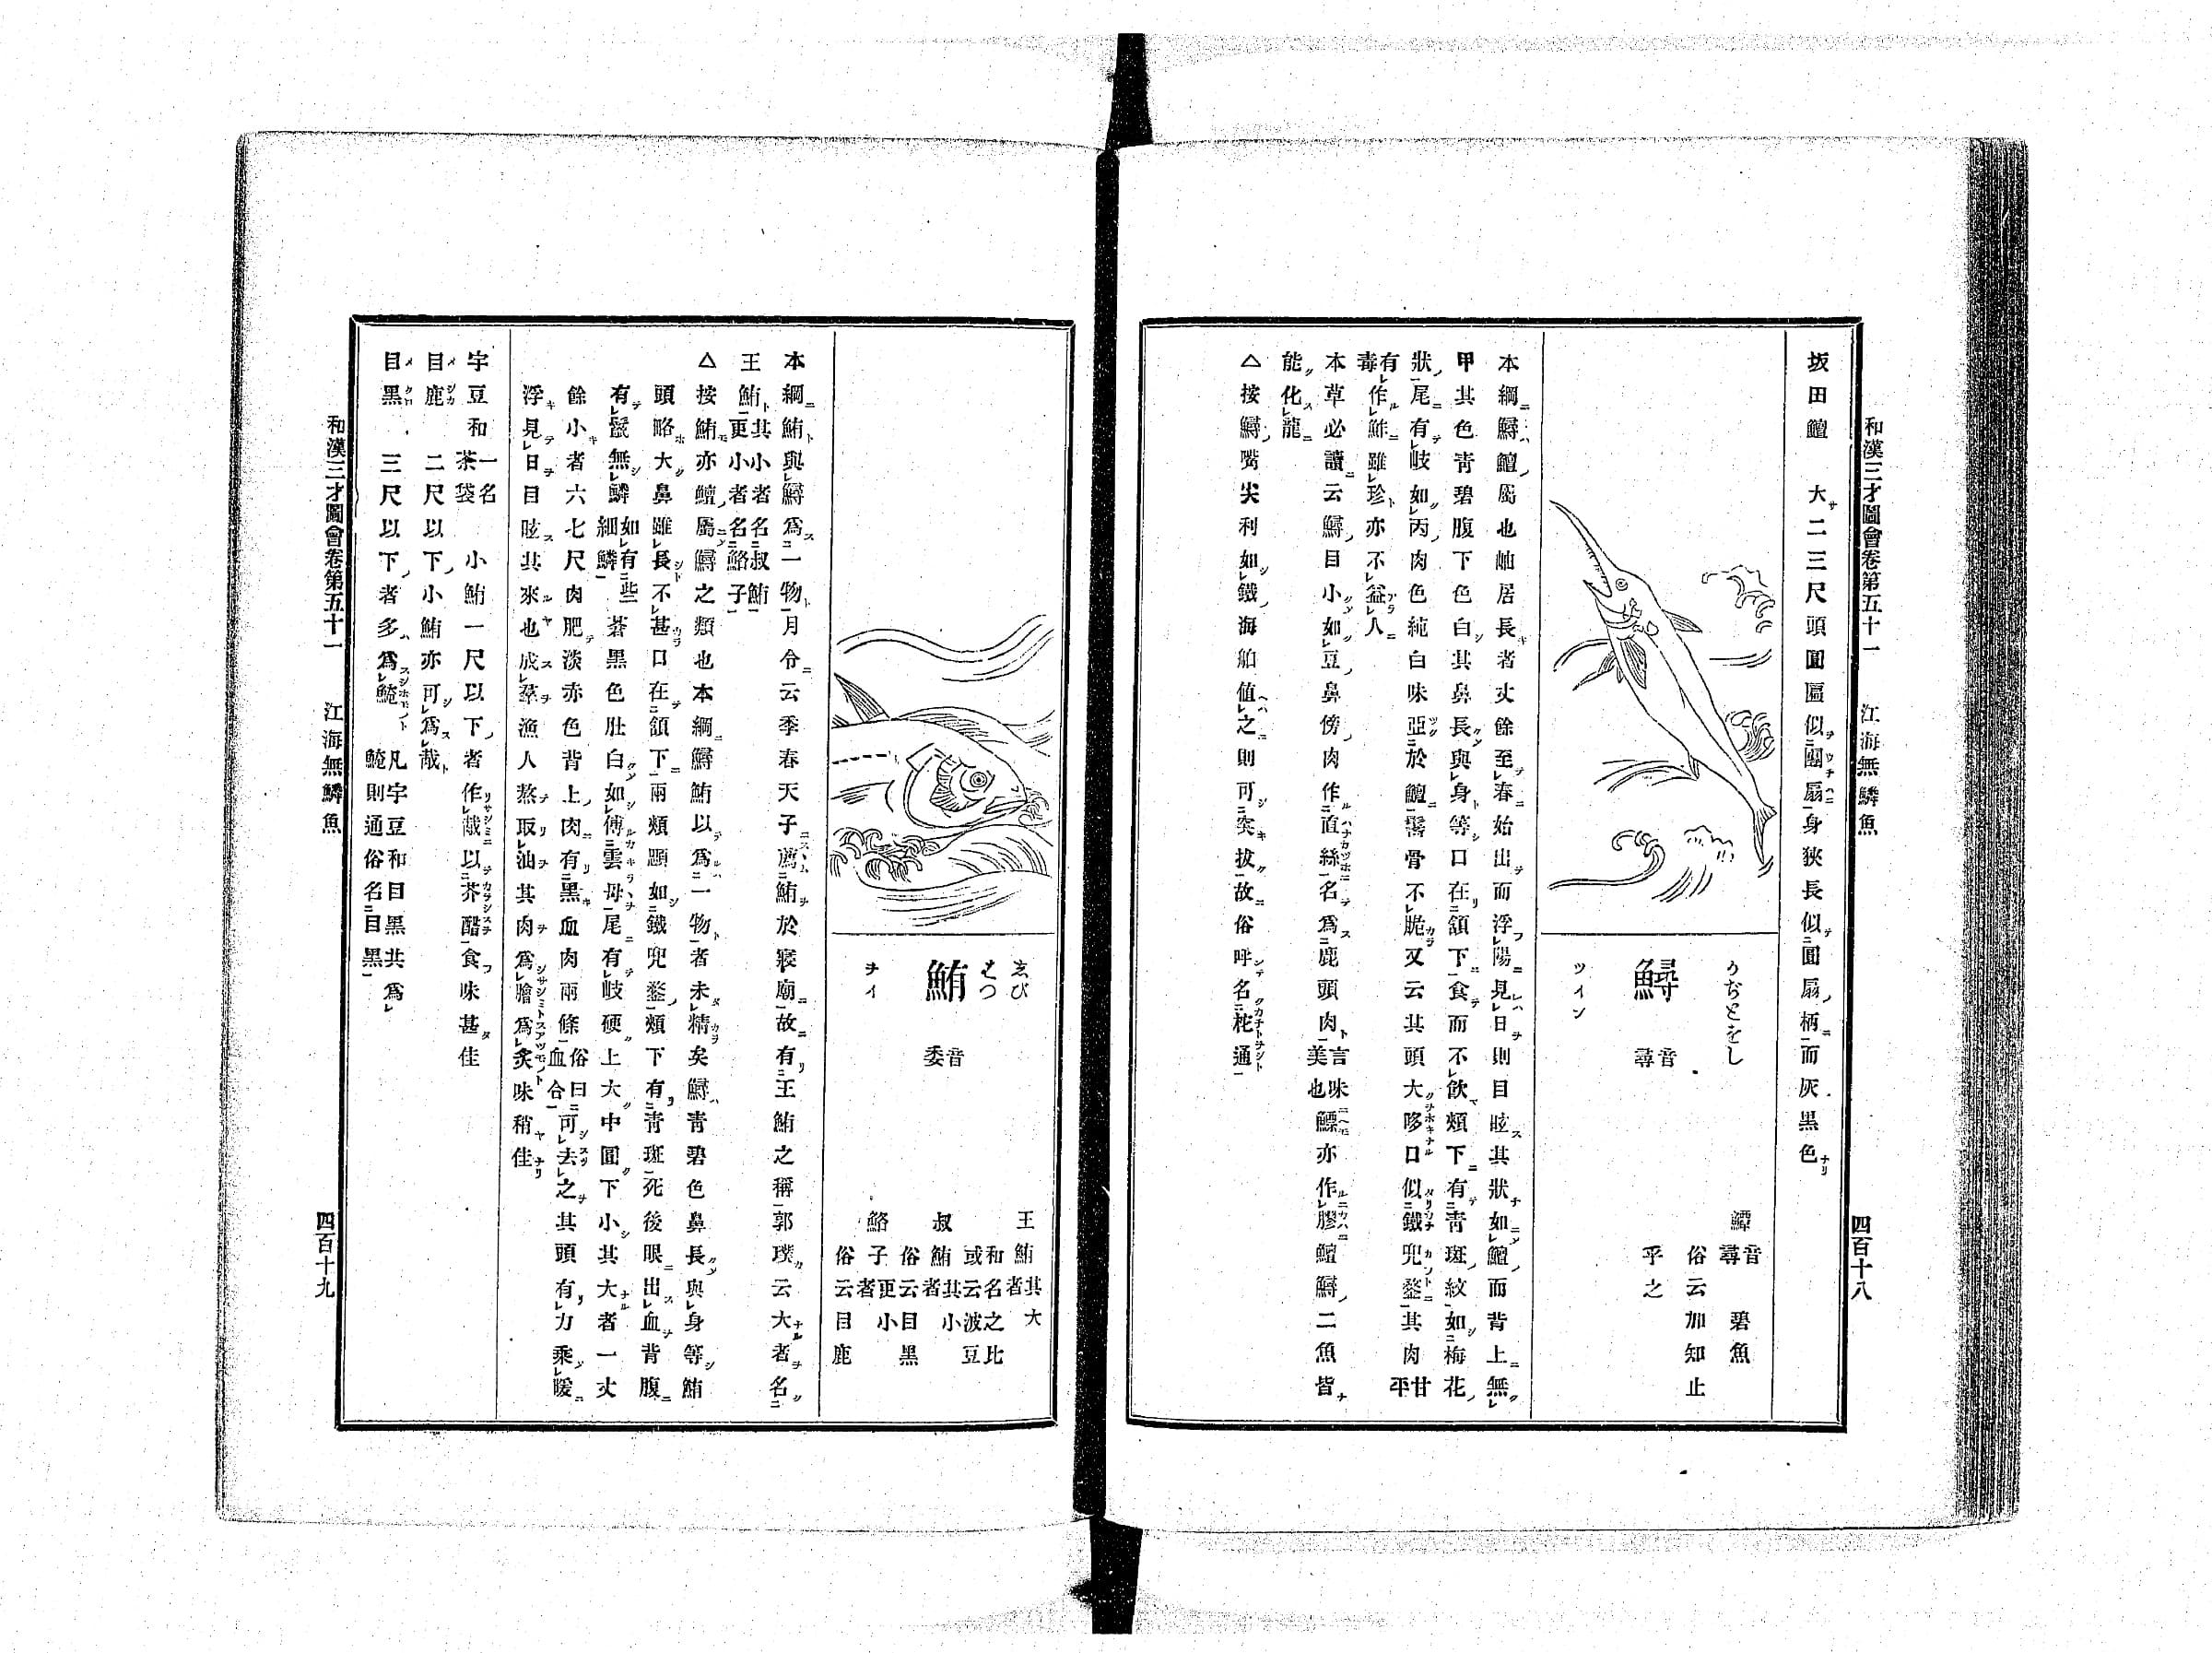 和漢三才圖會卷第五十一　江海無鱗魚　四百十八
坂田鱣　大二三尺頭圓匾似團扇身狹長似圓扇柄而灰黒色
かぢとをし
鱘
音尋
ツイン
鱏音尋　碧魚
俗云加知止
乎之
本綱鱘鱣屬也岫居長者丈餘至春始出而浮陽見日則目眩其狀如鱣而背上無
甲其色青碧腹下色白其鼻長與身等口在頷下食而不飲頰下有青斑紋如梅花
狀尾有岐如丙肉色純白味亞於鱣鬐骨不脆又云其頭大哆口似鐵兜鍪其肉甘平
有毒作鮓雖珍亦不益人
本草必讀云鱘目小如豆鼻傍肉作直絲名爲鹿頭肉言味美也鰾亦作膠鱣鱘二魚皆
能化龍
△按鱘嘴尖利如鐵海舶値之則可突拔故俗呼名柁通
ゑび
はつ
鮪
音委
ヲイ
王鮪其大者
和名之比
或云波豆
叔鮪其小者
俗云目黒
鮥子更小者
俗云目鹿
本綱鮪與鱘爲一物月令云季春天子薦鮪於寢廟故有王鮪之稱郭璞云大者名
王鮪其小者名叔鮪更小者名鮥子
△按鮪亦鱣屬鱘之類也本綱鱘鮪以爲一物者未精矣鱘青碧色鼻長與身等鮪
頭略大鼻雖長不甚口在頷下兩頰顋如鐵兜鍪頰下有青斑死後眼出血背腹
有鬣無鱗如有些細鱗蒼黒色肚白如傅雲母尾有岐硬上大中圓下小其大者一丈
餘小者六七尺肉肥淡赤色背上肉有黒血肉兩條俗曰血合可去之其頭有力乘暖
浮見日目眩其來也成羣漁人熬取油其肉爲膾爲炙味稍佳
宇豆和一名茶袋　小鮪一尺以下者作䱹以芥醋食味甚佳
目鹿　二尺以下小鮪亦可爲胾
目黒　三尺以下者多爲䱹　凡宇豆和目黒共爲䱹則通俗名目黒
和漢三才圖會卷第五十一　江海無鱗魚　四百十九